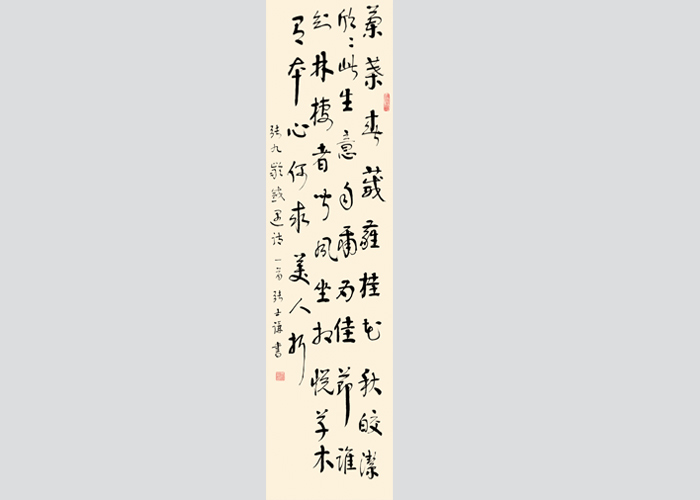 蘭葉春葳蕤桂花秋皎潔
欣々此生意自爾为佳節誰
知林棲者聞风坐相悦草木
有本心何求美人折
张九龄感遇诗一首张谦書